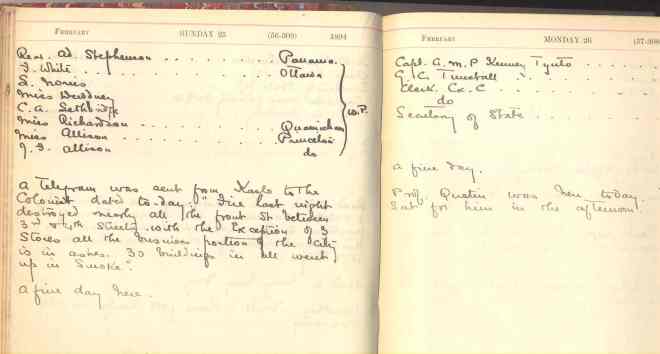 FEBRUARY SUNDAY 25 (56-309) 1894
Rev. Ad. Stephenson . . . . . . . Panama
J. White . . . . . . . . . . Ottawa
S. Norris
Miss Dewdney
C. A.
Miss Richardson . . . . . . . Quamichan
Miss Allison . . . . . . . Princeton
J. S. Allison do
W.P.
A Telegram was sent from Kaslo to the
Colonist dated to-day. "Fire last night
destroyed nearly all the front St between
3rd & 4th Streets with the Exception of 3
Stores all the business portion of the City
is in ashes. 30 buildings in all went
up in Smoke".
A fine day here.
FEBRUARY MONDAY 26 (57-308
Capt. G. M. P. Kenney . . . . .
G. C. Tunstall
Clerk Ex. C . . . . . .
do
Secretary of State . . . . . .
A fine day.
Prof. was here to day.
Sat for him in the afternoon.